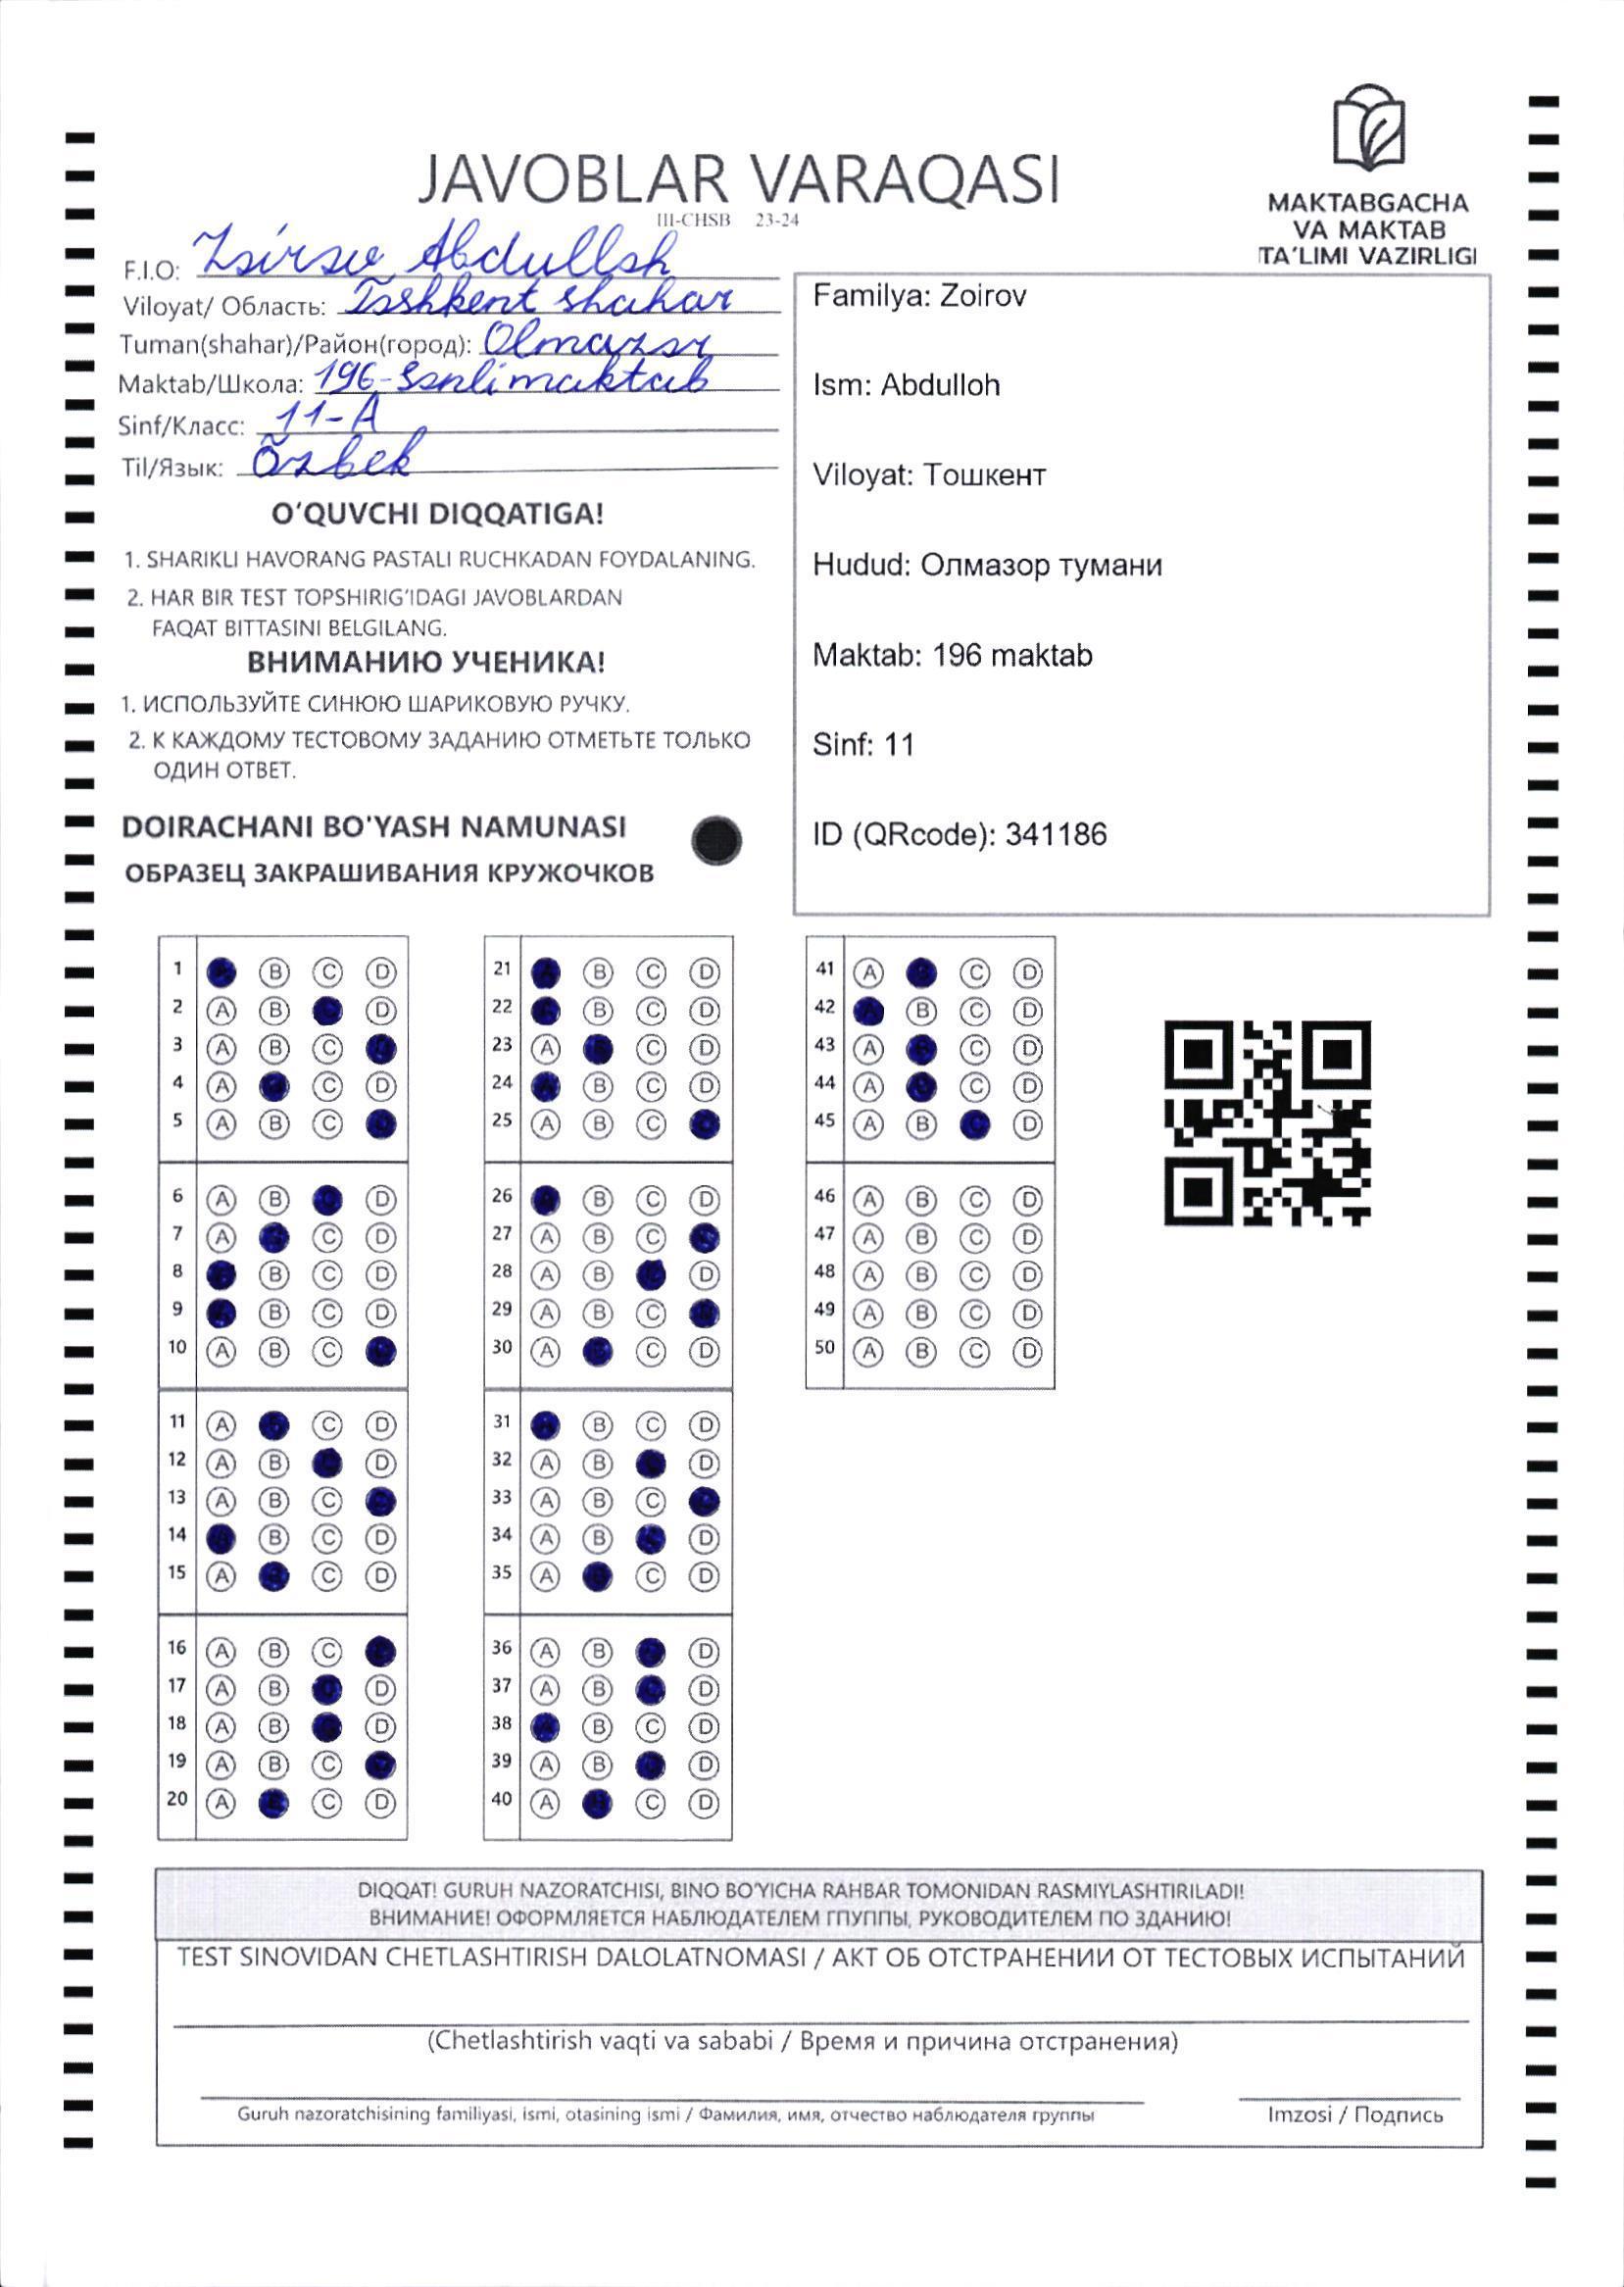 JAVOBLAR VARAQASI
III-CHSB 23-24
MAKTABGACHA
VA MAKTAB
TA'LIMI VAZIRLIGI
F.I.O: Zoirov Abdulloh
Viloyat/ Область: Toshkent shahar
Tuman(shahar)/Район(город): Olmazor
Maktab/Школа: 196-sonli maktab
Sinf/Класс: 11-A
Til/Язык: Õzbek
Familya: Zoirov
Ism: Abdulloh
Viloyat: Тошкент
Hudud: Олмазор тумани
Maktab: 196 maktab
Sinf: 11
ID (QRcode): 341186
O'QUVCHI DIQQATIGA!
1. SHARIKLI HAVORANG PASTALI RUCHKADAN FOYDALANING.
2. HAR BIR TEST TOPSHIRIG'IDAGI JAVOBLARDAN
FAQAT BITTASINI BELGILANG.
ВНИМАНИЮ УЧЕНИКА!
1. ИСПОЛЬЗУЙТЕ СИНЮЮ ШАРИКОВУЮ РУЧКУ.
2. К КАЖДОМУ ТЕСТОВОМУ ЗАДАНИЮ ОТМЕТЬТЕ ТОЛЬКО
ОДИН ОТВЕТ.
DOIRACHANI BO'YASH NAMUNASI
ОБРАЗЕЦ ЗАКРАШИВАНИЯ КРУЖОЧКОВ
1 B C D
2 A B D
3 A B C
4 A C D
5 A B C
6 A B D
7 A C D
8 B C D
9 B C D
10 A B C
11 A C D
12 A B D
13 A B C
14 B C D
15 A C D
16 A B C
17 A B D
18 A B D
19 A B C
20 A C D
21 A B C D
22 B C D
23 A C D
24 A B C D
25 A B C
26 B C D
27 A B C
28 A B D
29 A B C
30 A C D
31 B C D
32 A B D
33 A B C
34 A B D
35 A C D
36 A B D
37 A B D
38 A B C D
39 A B D
40 A C D
41 A C D
42 A B C D
43 A C D
44 A C D
45 A B D
46 A B C D
47 A B C D
48 A B C D
49 A B C D
50 A B C D
DIQQAT! GURUH NAZORATCHISI, BINO BO'YICHA RAHBAR TOMONIDAN RASMIYLASHTIRILADI!
ВНИМАНИЕ! ОФОРМЛЯЕТСЯ НАБЛЮДАТЕЛЕМ ГПУППЫ, РУКОВОДИТЕЛЕМ ПО ЗДАНИЮ!
TEST SINOVIDAN CHETLASHTIRISH DALOLATNOMASI / АКТ ОБ ОТСТРАНЕНИИ ОТ ТЕСТОВЫХ ИСПЫТАНИЙ
(Chetlashtirish vaqti va sababi / Время и причина отстранения)
Guruh nazoratchisining familiyasi, ismi, otasining ismi / Фамилия, имя, отчество наблюдателя группы
Imzosi / Подпись